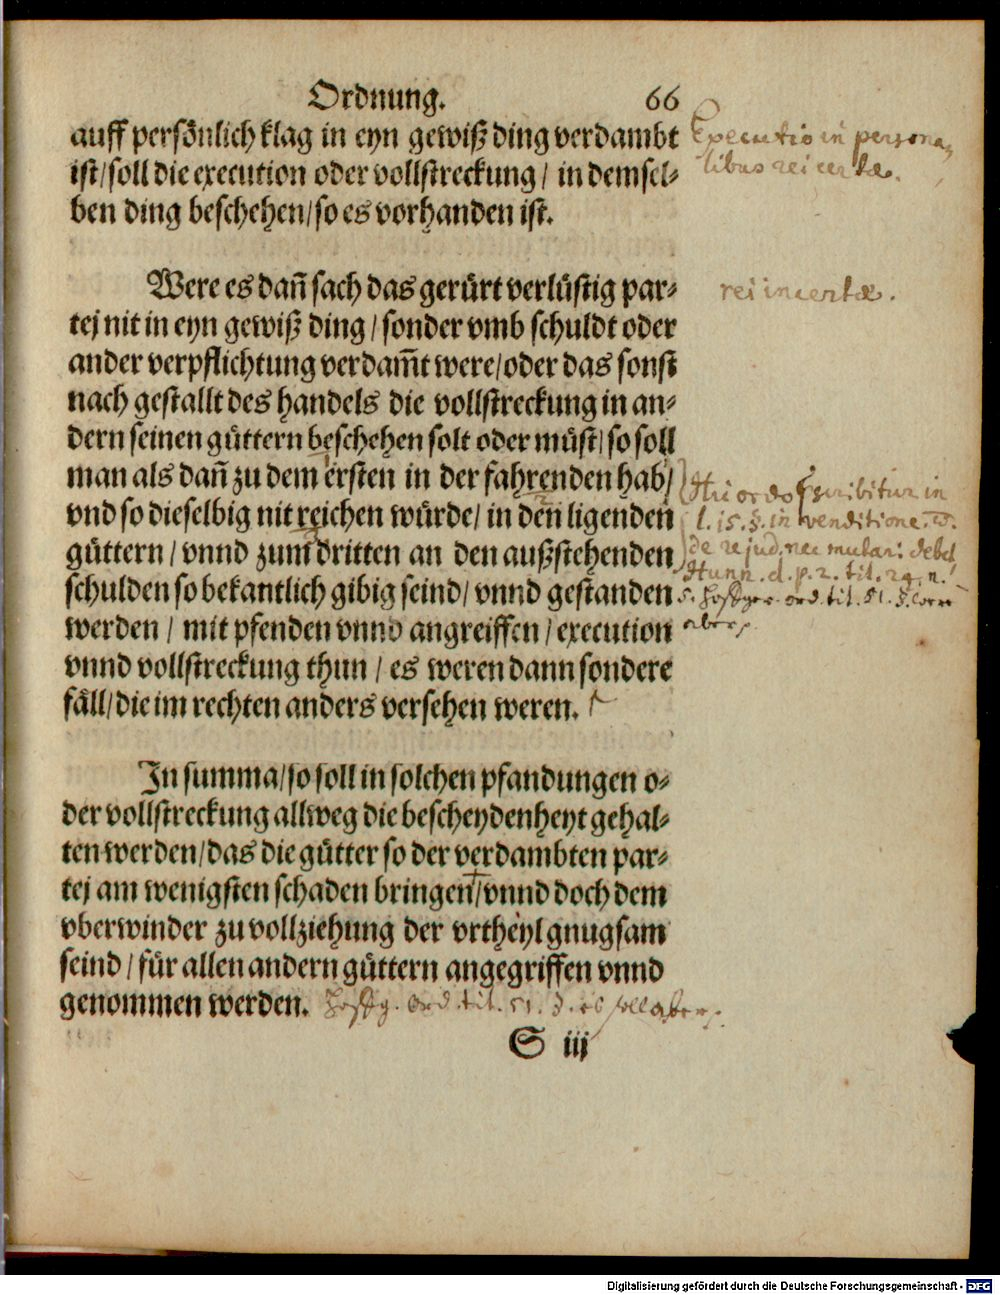 Ordnung. 66
auff persönlich klag in eyn gewiß ding verdambt
ist/ soll die execution oder vollstreckung/ in demsel⸗
ben ding beschehen/ so es vorhanden ist.
Executio in persona⸗
libus rei certæ.
Were es dañ sach das gerürt verlüstig par⸗
tej nit in eyn gewiß ding/ sonder vmb schuldt oder
ander verpflichtung verdam̃t were/ oder das sonst
nach gestallt des handels die vollstreckung in an⸗
dern seinen güttern beschehen solt oder müst/ so soll
man als dañ zu dem ersten in der fahrenden hab/
vnd so dieselbig nit reichen würde/ in den ligenden
güttern/ vnnd zum dritten an den außstehenden
schulden so bekantlich gibig seind/ vnnd gestanden
werden/ mit pfenden vnnd angreiffen/ execution
vnnd vollstreckung thun/ es weren dann sondere
fäll/ die im rechten anders versehen weren.
rei incertæ.
Hic ordo scribitur in
l. 15. §. in venditione. D.
de re jud. nec mutari debet
Hunn. d. p. 2. tit. 29. n.
5. Hoffger. ord. tit. 51. §.
aber
In summa/ so soll in solchen pfandungen o⸗
der vollstreckung allweg die bescheydenheyt gehal⸗
ten werden/ das die gütter so der verdambten par⸗
tej am wenigsten schaden bringen/ vnnd doch dem
vberwinder zu vollziehung der vrtheyl gnugsam
seind/ für allen andern güttern angegriffen vnnd
genommen werden. Hoffg. Ord. tit. 51. §. es soll aber
S iij
Digitalisierung gefördert durch die Deutsche Forschungsgemeinschaft - DFG